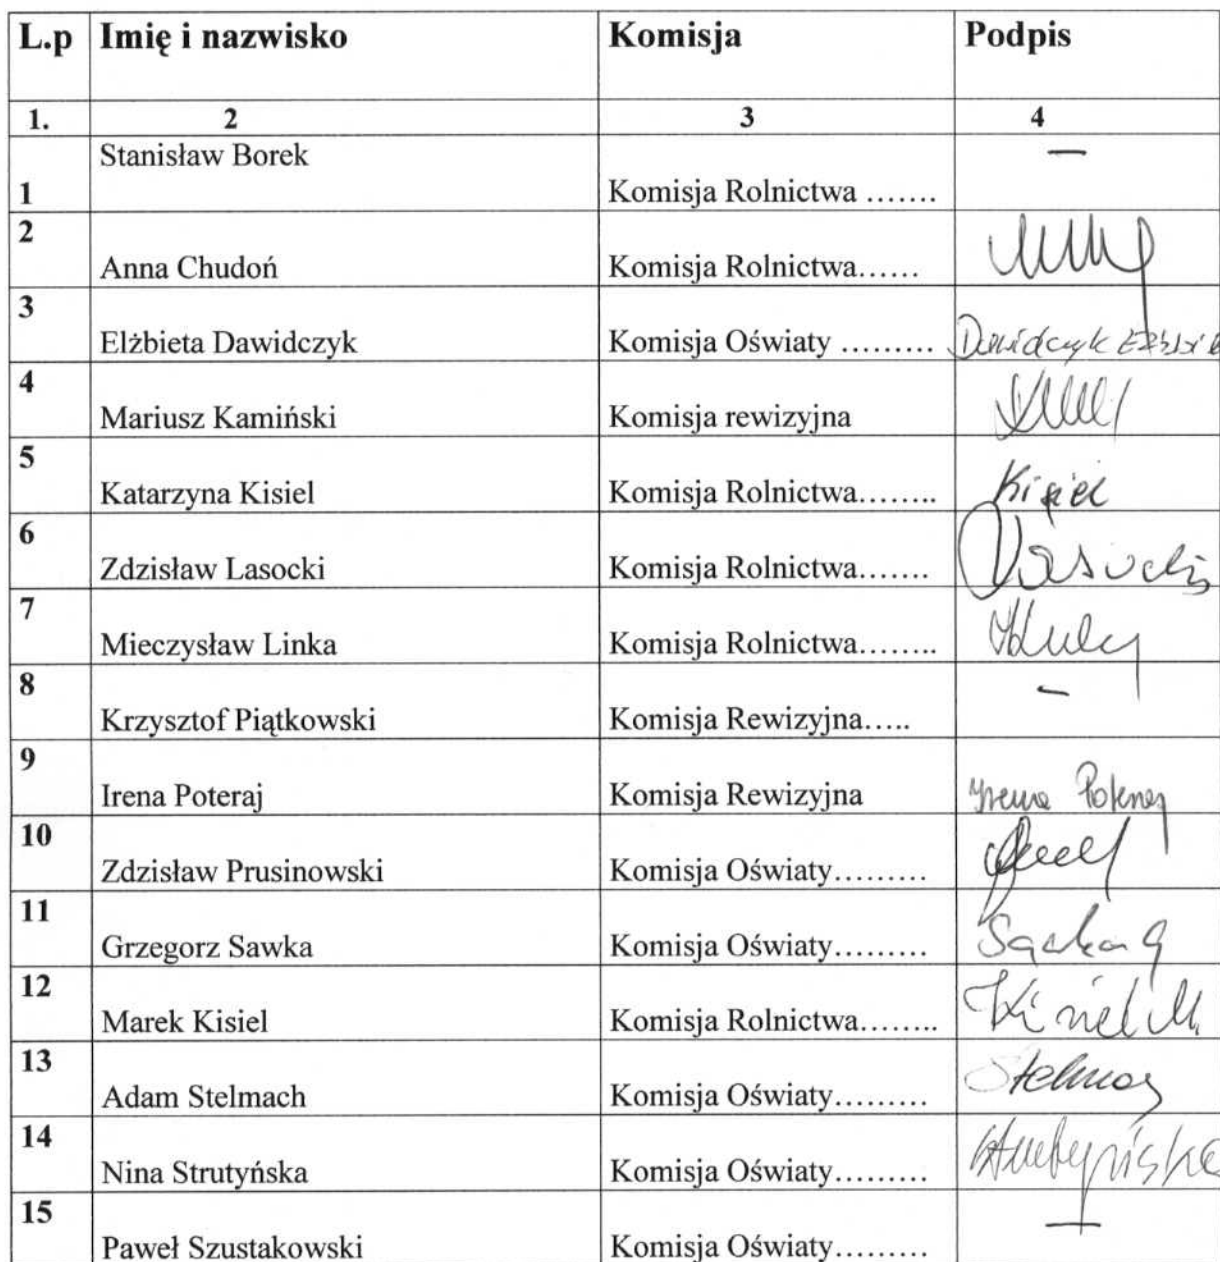 L.p Imię i nazwisko Komisja Podpis
1. 2 3 4
Stanisław Borek —
1 Komisja Rolnictwa …….
2
Anna Chudoń Komisja Rolnictwa……
3
Elżbieta Dawidczyk Komisja Oświaty ……… Dawidczyk Elżbieta
4
Mariusz Kamiński Komisja rewizyjna
5
Katarzyna Kisiel Komisja Rolnictwa…….. Kisiel
6
Zdzisław Lasocki Komisja Rolnictwa……. Lasocki
7
Mieczysław Linka Komisja Rolnictwa……..
8 —
Krzysztof Piątkowski Komisja Rewizyjna…..
9
Irena Poteraj Komisja Rewizyjna Irena Poteraj
10
Zdzisław Prusinowski Komisja Oświaty………
11
Grzegorz Sawka Komisja Oświaty……… Sawka G
12
Marek Kisiel Komisja Rolnictwa…….. Kisiel M
13
Adam Stelmach Komisja Oświaty……… Stelmach
14
Nina Strutyńska Komisja Oświaty……… Strutyńska
15 —
Paweł Szustakowski Komisja Oświaty………